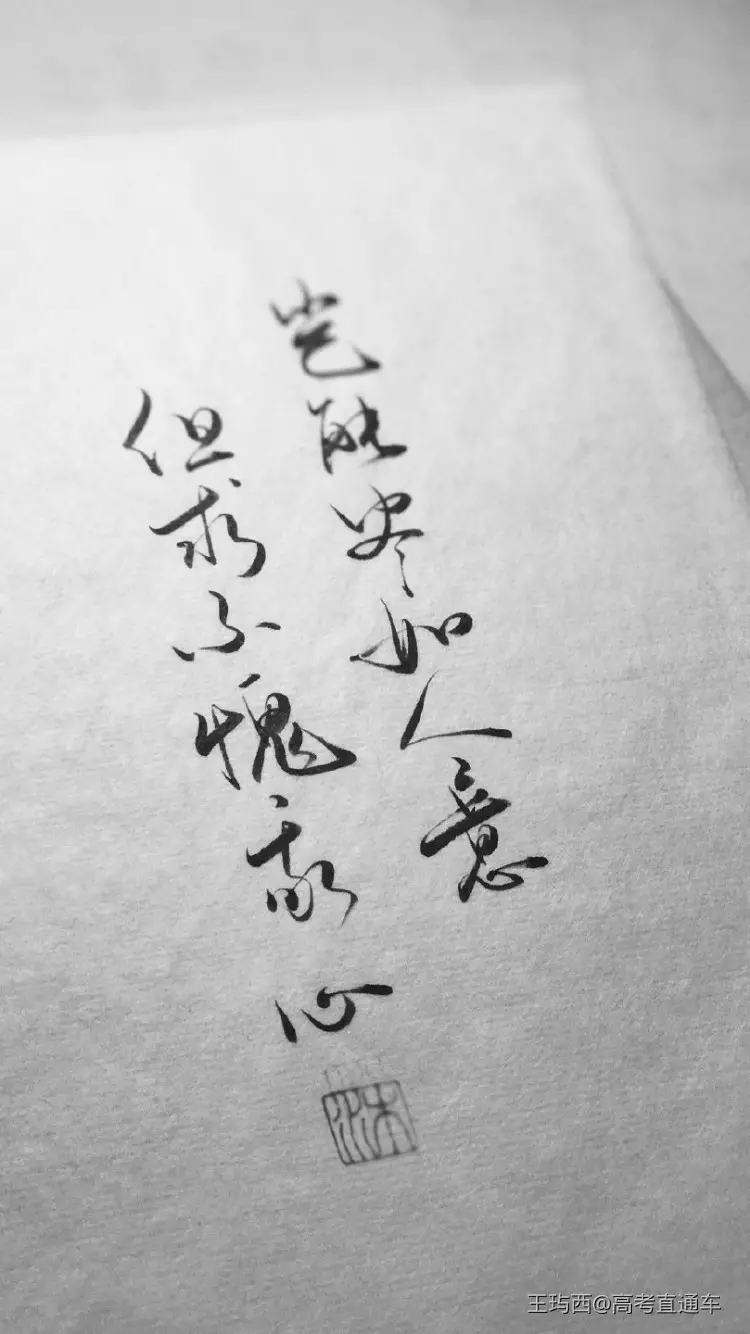 岂能尽如人意
但求不愧我心
王玙西@高考直通车